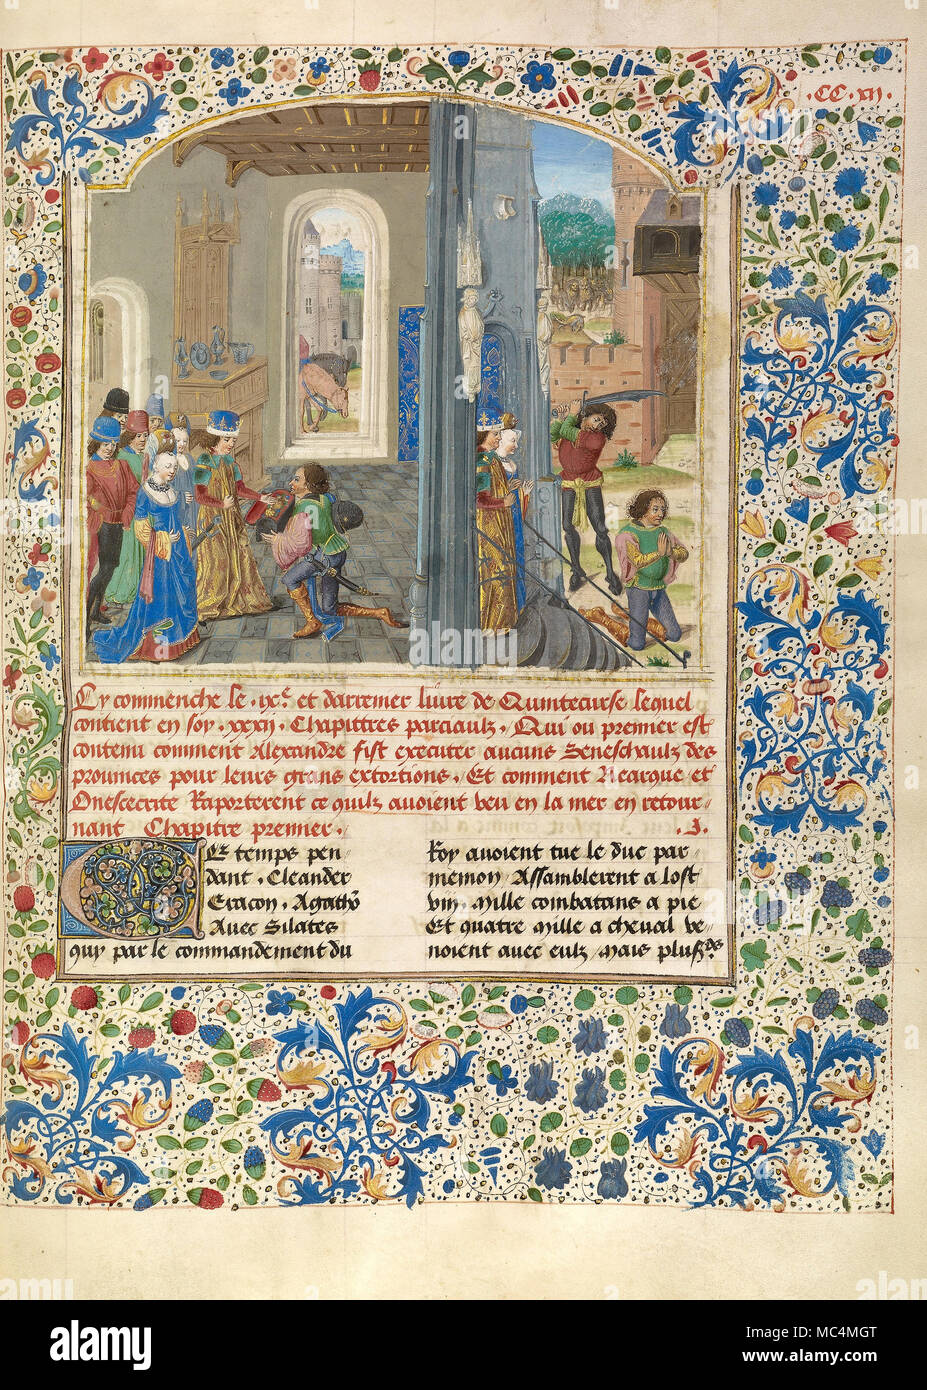 .CC.xij.
Cy commenche le .ixe. et darremer livre de Quintecurse lequel
contient en soy .xxxij. Chapittres parciaulz. Qui ou premier est
contenu comment Alexandre fist executer aucuns Seneschaulz des
prouinces pour leurs grans extortions. Et comment Nearque et
Onescecrite Raporterent ce quilz auoient veu en la mer en retour-
nant Chapitre premier. .J.
CE temps pen-
dant. Cleander
Eracon. Agatho
Auec Silates
quy par le commandement du
Roy auoient tue le duc par
menion Assamblerent a lost
vin. Mille combatans a pie
Et quatre Mille a cheual ve
noient auec eulz Mais plusrs
alamy
a
MC4MGT
www.alamy.com